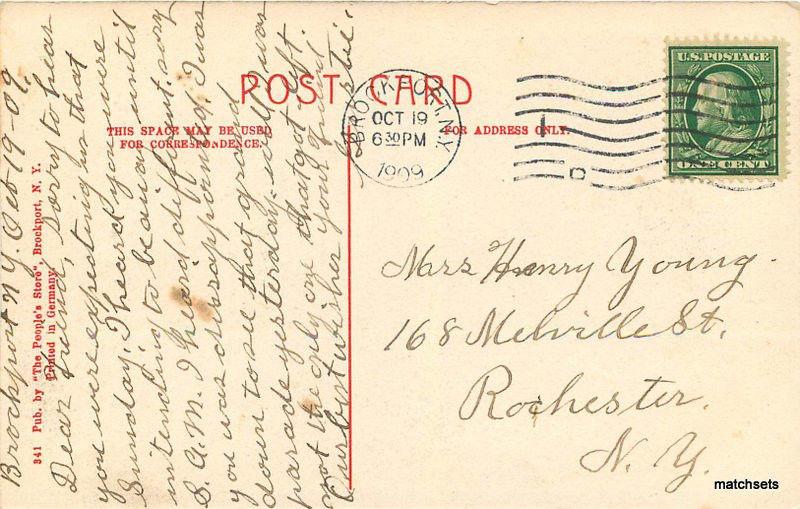 POST CARD
THIS SPACE MAY BE USED
FOR CORRESPONDENCE.
FOR ADDRESS ONLY.
BROCKPORT, N.Y.
OCT 19
6 30 PM
1909
D
U.S. POSTAGE
ONE CENT
341 Pub. by "The People's Store", Brockport, N. Y.
Printed in Germany.
Brockport N.Y. Oct-19-09
Dear friend, sorry to hear
you were expecting in that
Sunday. I heard you were
intending to be in until
S. A. M. I heard different. sorry
you was disappointed. I was
down to see that grand
parade yesterday.
not the only one that got left.
Our best wishes your friend
Mrs Henry Young.
168 Melville St.
Rochester.
N. Y.
matchsets